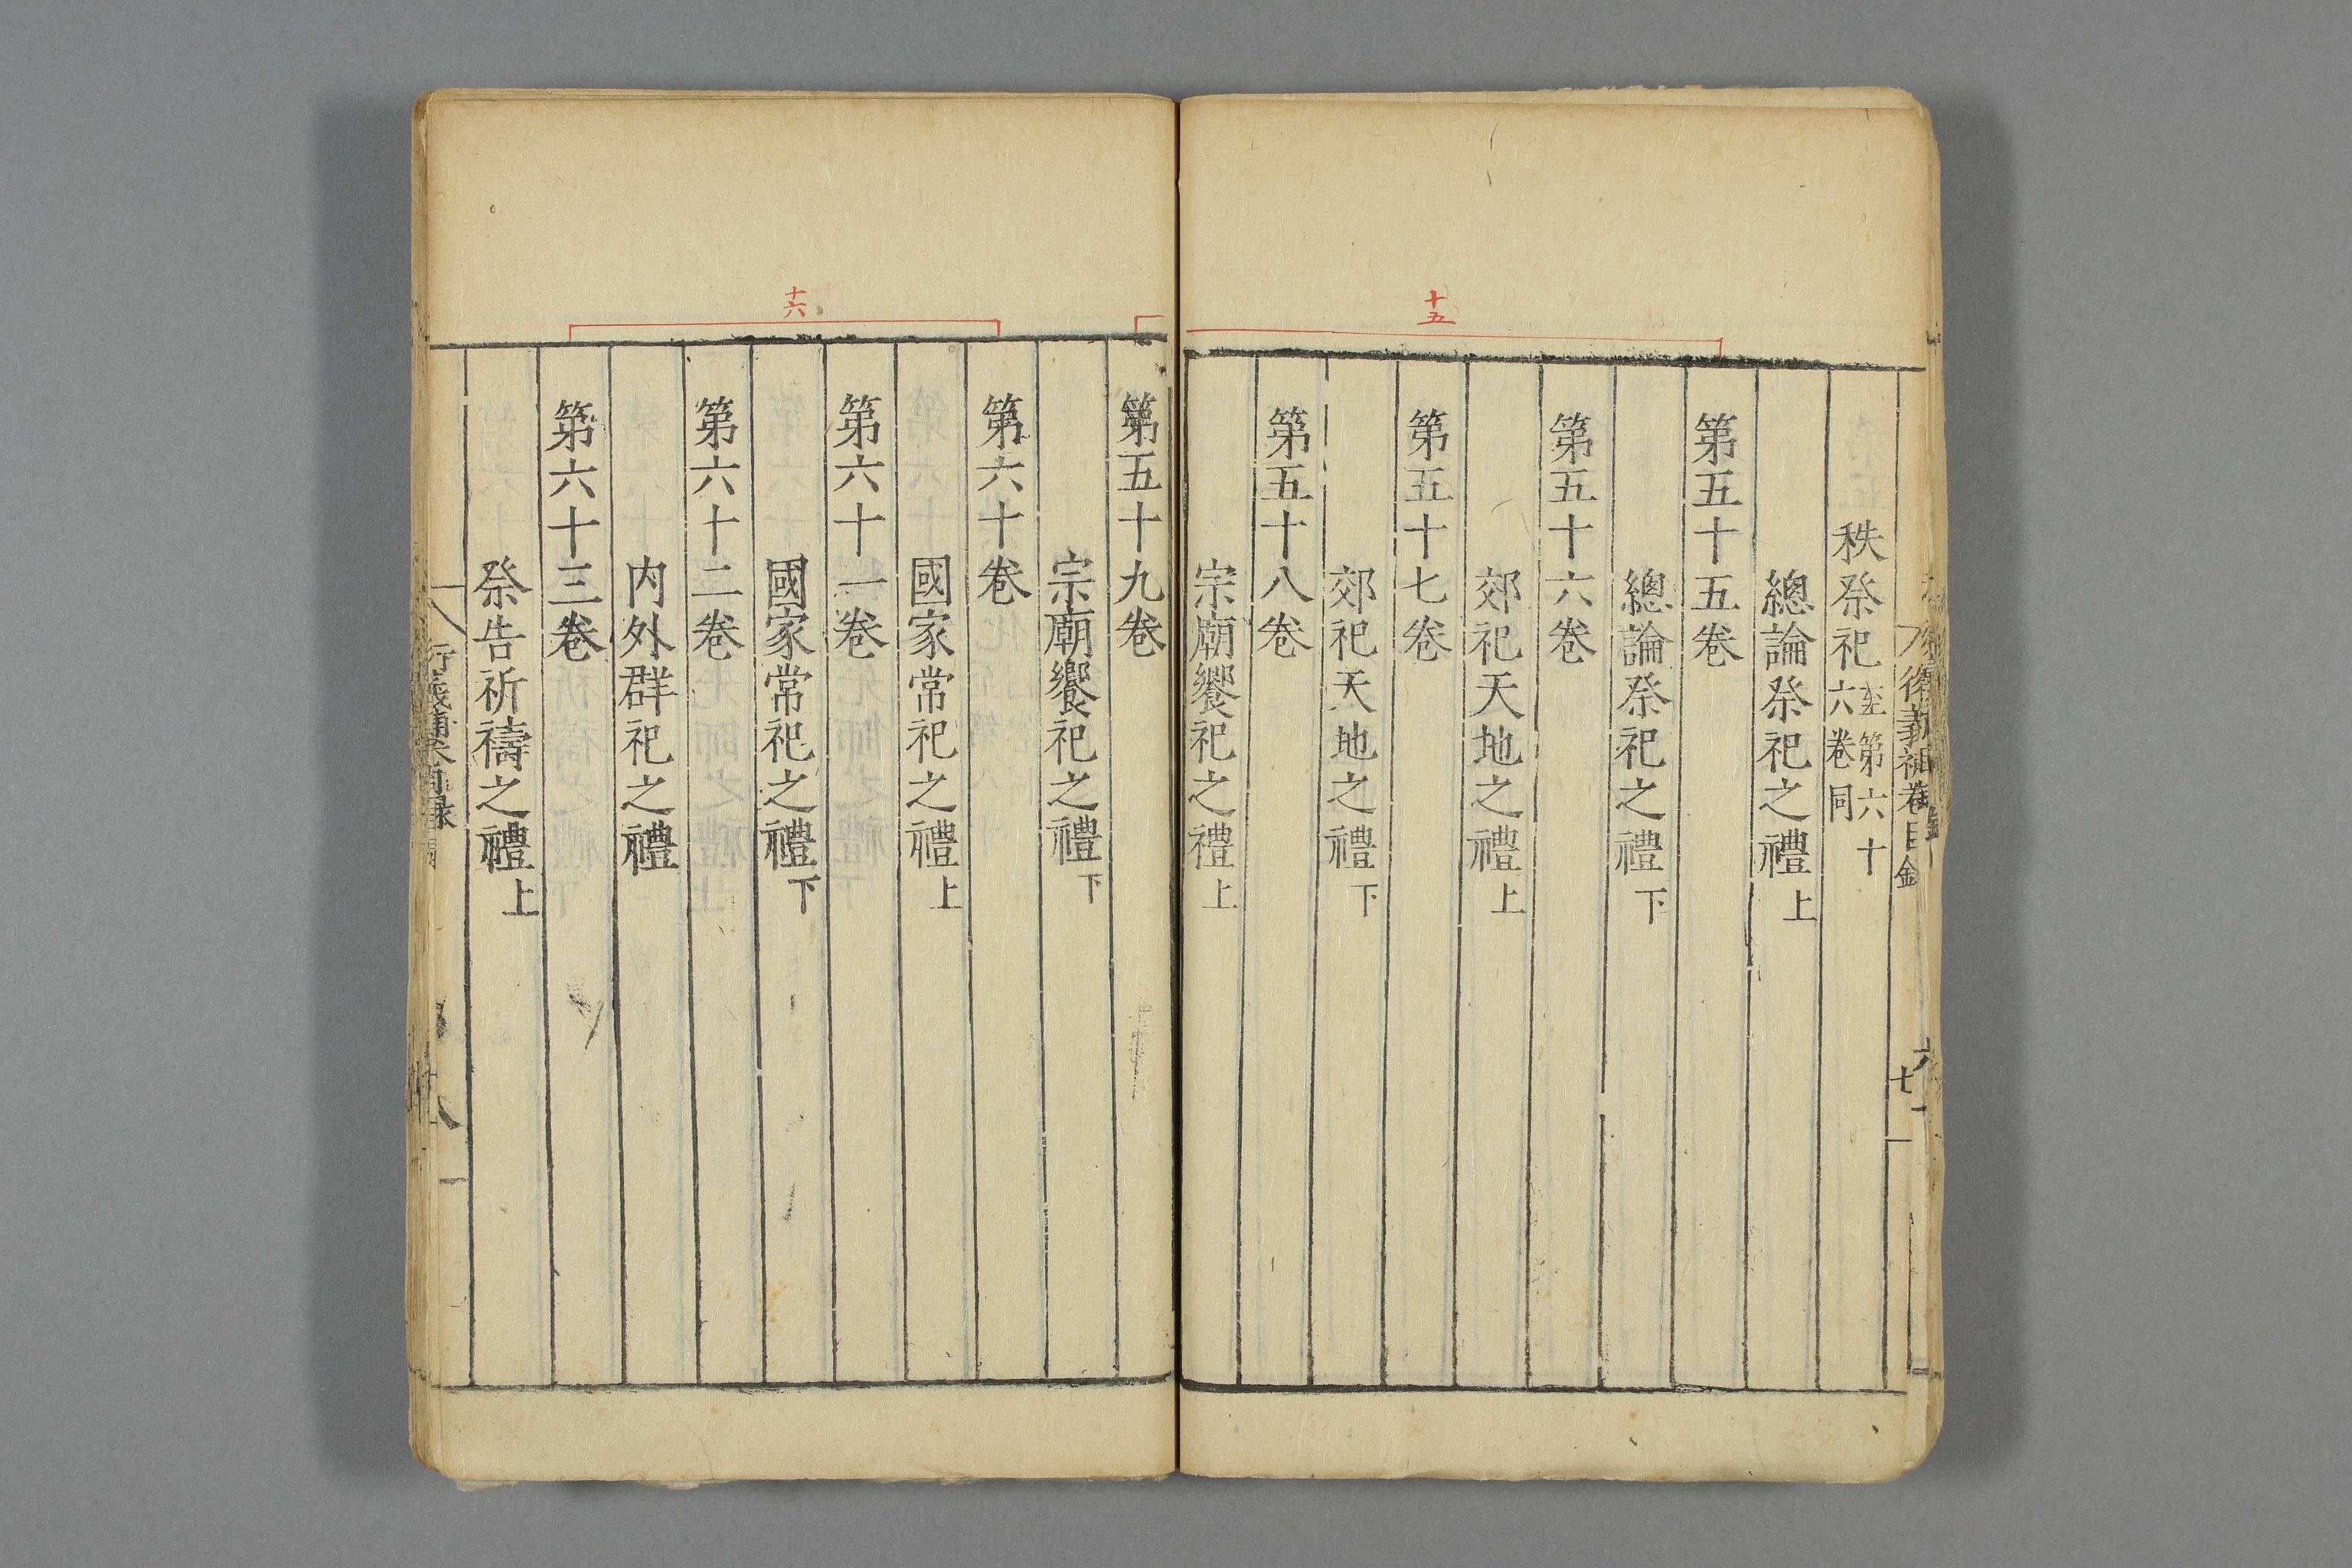 十五
秩祭祀至第六十六卷同
總論祭祀之禮上
第五十五卷
總論祭祀之禮下
第五十六卷
郊祀天地之禮上
第五十七卷
郊祀天地之禮下
第五十八卷
宗廟饗祀之禮上
十六
第五十九卷
宗廟饗祀之禮下
第六十卷
國家常祀之禮上
第六十一卷
國家常祀之禮下
第六十二卷
内外群祀之禮
第六十三卷
祭告祈禱之禮上